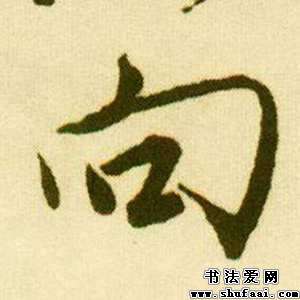 向
书法爱网
www.shufaai.com